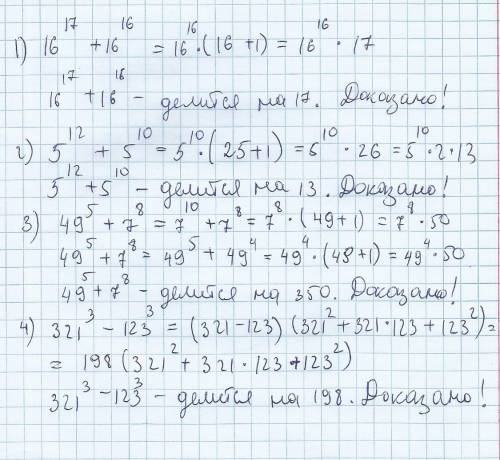 1) 16¹⁷ + 16¹⁶ = 16¹⁶·(16+1) = 16¹⁶·17
16¹⁷ + 16¹⁶ – делится на 17. Доказано!
2) 5¹² + 5¹⁰ = 5¹⁰·(25+1) = 5¹⁰·26 = 5¹⁰·2·13
5¹² + 5¹⁰ – делится на 13. Доказано!
3) 49⁵ + 7⁸ = 7¹⁰ + 7⁸ = 7⁸·(49+1) = 7⁸·50
49⁵ + 7⁸ = 49⁵ + 49⁴ = 49⁴·(48+1) = 49⁴·50
49⁵ + 7⁸ – делится на 350. Доказано!
4) 321³ – 123³ = (321–123)(321² + 321·123 + 123²) =
= 198 (321² + 321·123 + 123²)
321³ – 123³ – делится на 198. Доказано!